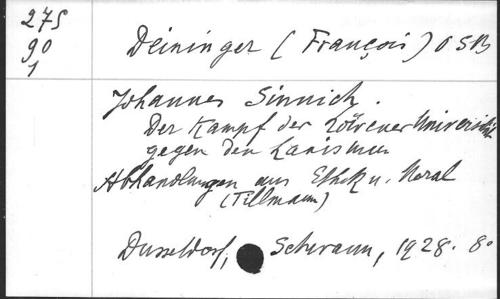 275
90
1
Deininger (François) OSB
Johannes Sinnich.
Der Kampf der Löwener Universität
gegen den Laxismus
Abhandlungen aus Ethik u. Moral
(Tillmann)
Dusseldorf, Schwann, 1928. 8°